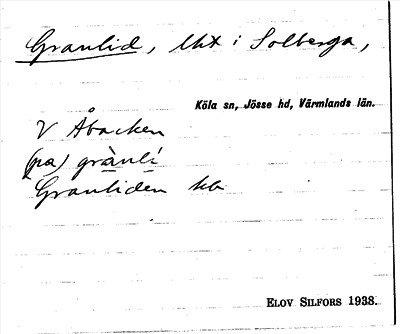 Granlid, lht i Solberga,
Köla sn, Jösse hd, Värmlands län.
V Åbacken
(pa) grànlí
Granliden kb
ELOV SILFORS 1938.